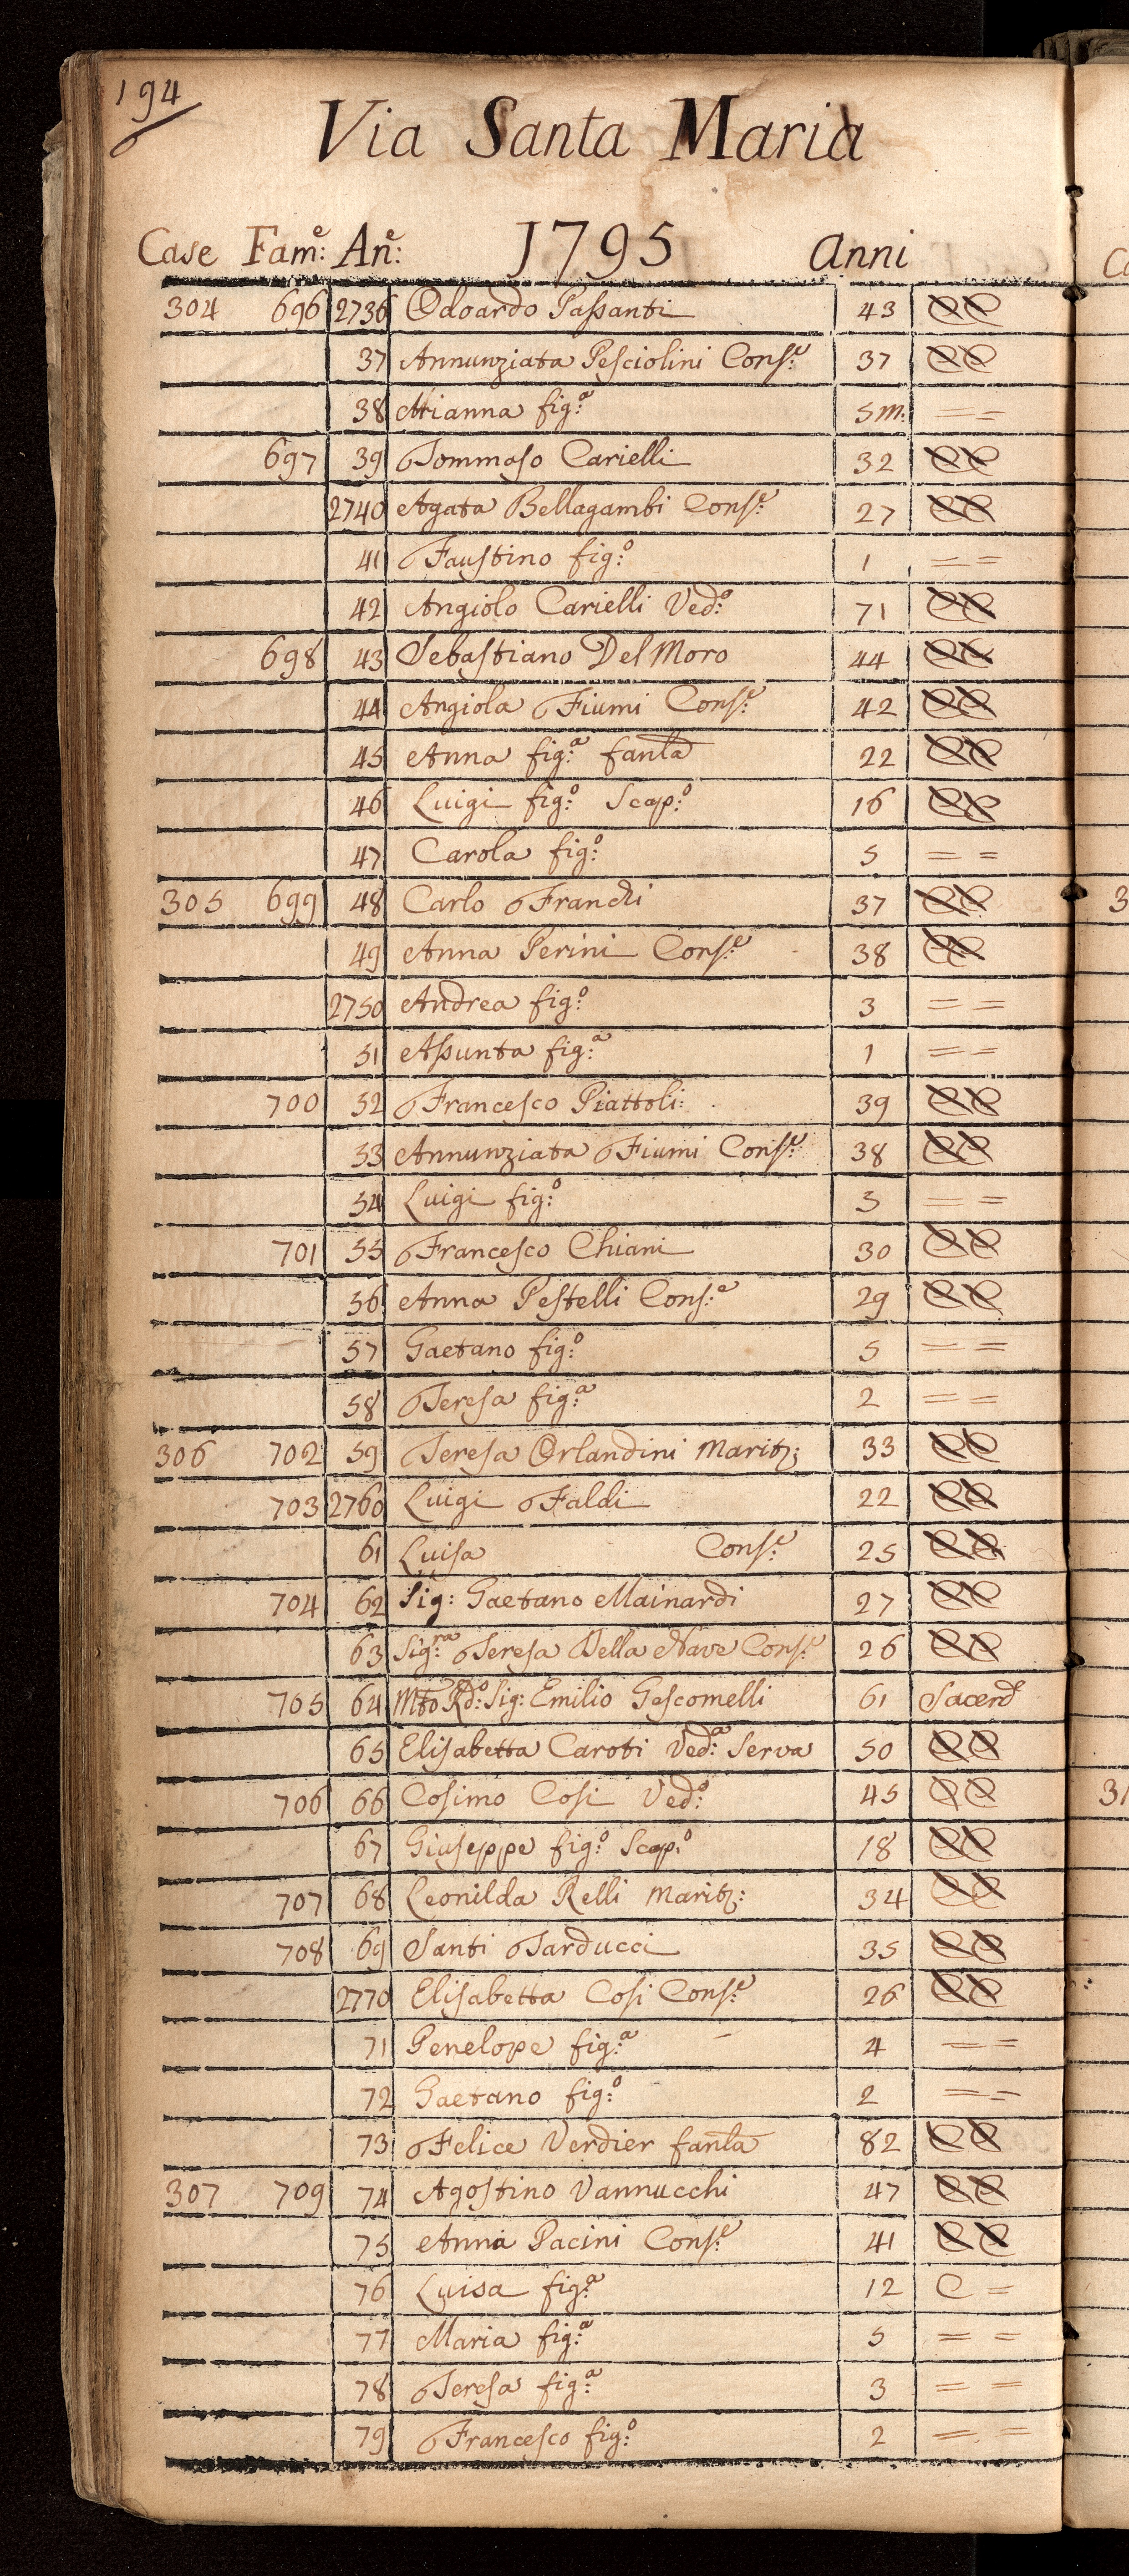 194
Via Santa Maria
Case Fam:e An:e 1795 Anni
304 696 2736 Odoardo Passanti 43 CC
37 Annunziata Pesciolini Cons:e 37 CC
38 Mianna fig:a 5 m: = =
697 39 Tommaso Carielli 32 CC
2740 Agata Bellagambi Cons:e 27 CC
41 Faustino fig:o 1 = =
42 Angiolo Carielli Ved:o 71 CC
698 43 Sebastiano Del Moro 44 CC
44 Angiola Fiumi Cons:e 42 CC
45 Anna fig:a fanla 22 CC
46 Luigi fig:o Scap:o 16 CC
47 Carola fig:o 5 = =
305 699 48 Carlo Franchi 37 CC
49 Anna Perini Cons:e 38 CC
2750 Andrea fig:o 3 = =
51 Assunta fig:a 1 = =
700 52 Francesco Piattoli: 39 CC
53 Annunziata Fiumi Cons:e 38 CC
54 Luigi fig:o 3 = =
701 55 Francesco Chiani 30 CC
56 Anna Pestelli Cons:e 29 CC
57 Gaetano fig:o 5 = =
58 Teresa fig:a 2 = =
306 702 59 Teresa Orlandini Marit: 33 CC
703 2760 Luigi Faldi 22 CC
61 Luisa Cons:e 25 CC
704 62 Sig: Gaetano Mainardi 27 CC
63 Sig:ra Teresa Della Nave Cons:e 26 CC
705 64 Mto Rdo: Sig: Emilio Gescomelli 61 Sacerd
65 Elisabetta Caroti Ved:a Serva 50 CC
706 66 Cosimo Cosi Ved:o 45 CC
67 Giuseppe fig:o Scap:o 18 CC
707 68 Leonilda Relli Marit: 34 CC
708 69 Santi Tarducci 35 CC
2770 Elisabetta Cosi Cons:e 26 CC
71 Penelope fig:a 4 = =
72 Gaetano fig:o 2 = =
73 Felice Verdier fanla 82 CC
307 709 74 Agostino Vannucchi 47 CC
75 Anna Pacini Cons:e 41 CC
76 Luisa fig:a 12 C =
77 Maria fig:a 5 = =
78 Teresa fig:a 3 = =
79 Francesco fig:o 2 = =